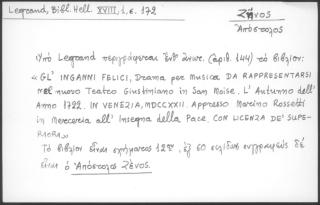 Legrand, Bibl. Hell. XVIII, 1. σ. 172
Ζῆνος
Ἀπόστολος
Ὑπὸ Legrand περιγράφεται ἔνθ' ἄνωτ. (ἀριθ. 144) τὸ βιβλίον:
« GL' INGANNI FELICI, Drama per Musica DA RAPPRESENTARSI
Nel nuovo Teatro Giustiniano in San Moise. L' Autunno dell'
Anno 1722. IN VENEZIA, MDCCXXII. Appresso Marino Rossetti
in Merceria all' Insegna della Pace. CON LICENZA DE' SUPE-
RIORI »
Τὸ βιβλίον εἶναι σχήματος 12ου, ἐξ 60 σελίδων συγγραφεὺς δὲ
εἶναι ὁ Ἀπόστολος Ζῆνος.